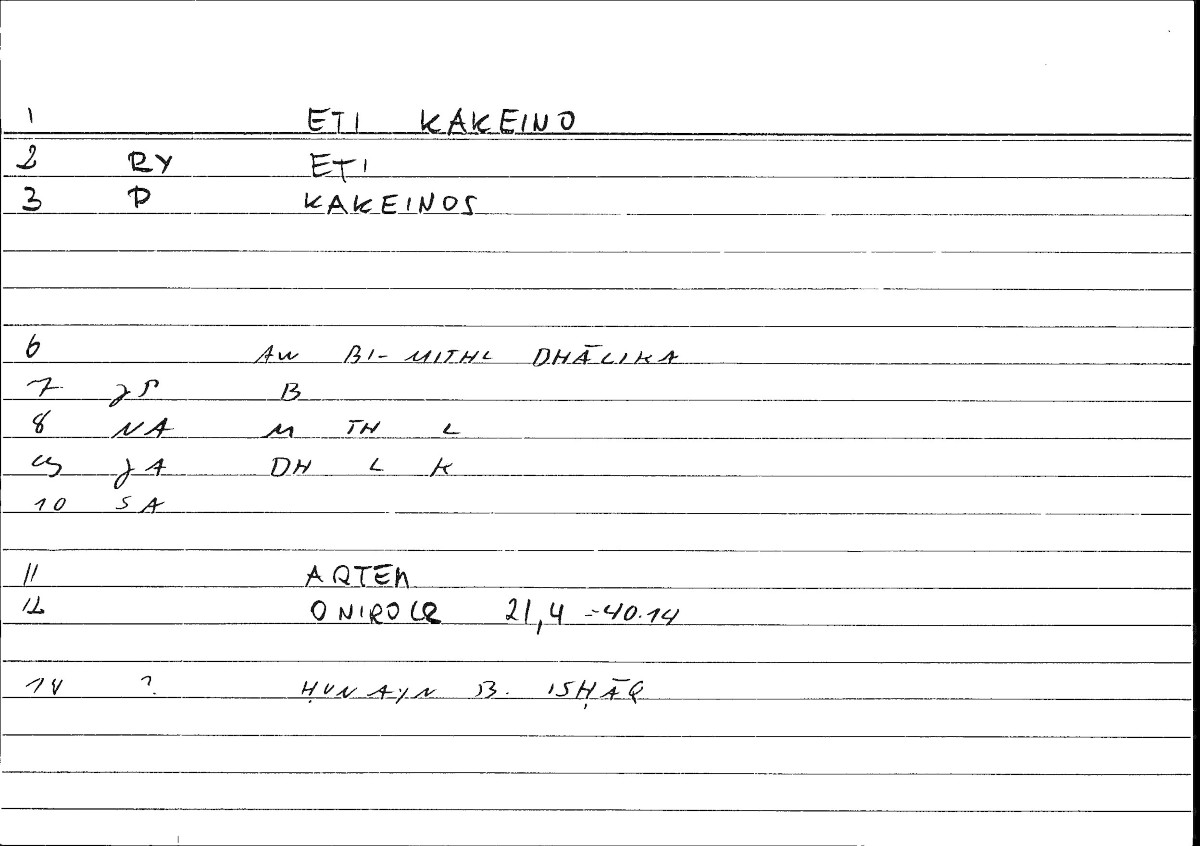 1 ETI KAKEINO
2 RY ETI
3 P KAKEINOS
6 AW BI-MITHL DHĀLIKA
7 JP B
8 NA M TH L
9 JA DH L K
10 SA
11 ARTEM
12 ONIROCR 21,4 = 40.14
14 ? ḤUNAYN B. ISḤĀQ